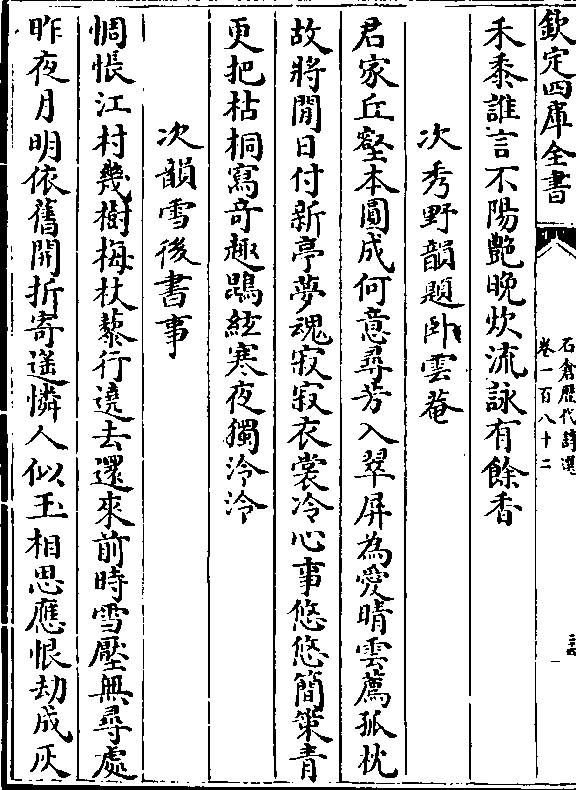 欽定四庫全書
石倉歷代詩選
卷一百八十二
禾黍誰言不陽艷晚炊流詠有餘香
次秀野韻題卧雲菴
君家丘壑本圓成何意尋芳入翠屏為愛晴雲薦孤枕
故將閒日付新亭夢魂寂寂衣裳冷心事悠悠簡策青
更把枯桐寫奇趣鵾絃寒夜獨泠泠
次韻雪後書事
惆悵江村幾樹梅杖藜行遶去還來前時雪壓無尋處
昨夜月明依舊開折寄遥憐人似玉相思應恨劫成灰